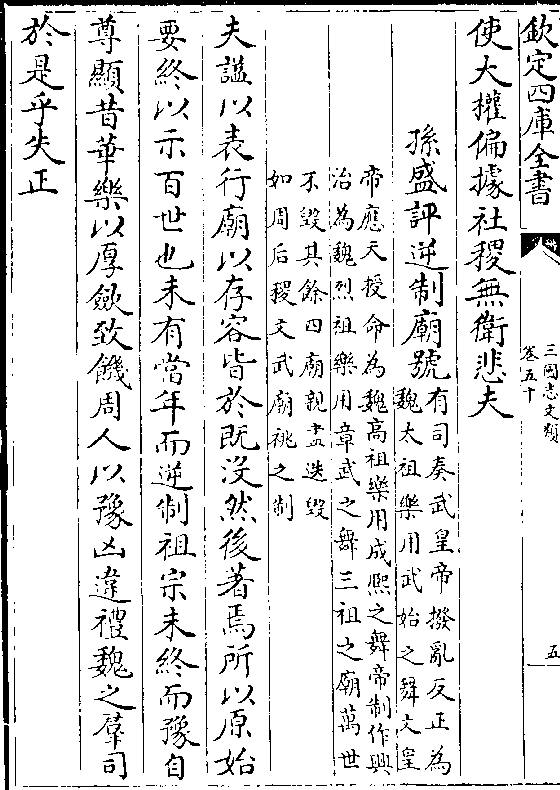 欽定四庫全書
三國志文類
卷五十
五
使大權偏據社稷無衛悲夫
孫盛評逆制廟號
有司奏武皇帝撥亂反正為
魏太祖樂用武始之舞文皇
帝應天授命為魏高祖樂用成熙之舞帝制作興
治為魏烈祖樂用章武之舞三祖之廟萬世
不毀其餘四廟親盡迭毀
如周后稷文武廟祧之制
夫諡以表行廟以存容皆於既沒然後著焉所以原始
要終以示百世也未有當年而逆制祖宗未終而豫自
尊顯昔華樂以厚歛致饑周人以豫凶違禮魏之羣司
於是乎失正